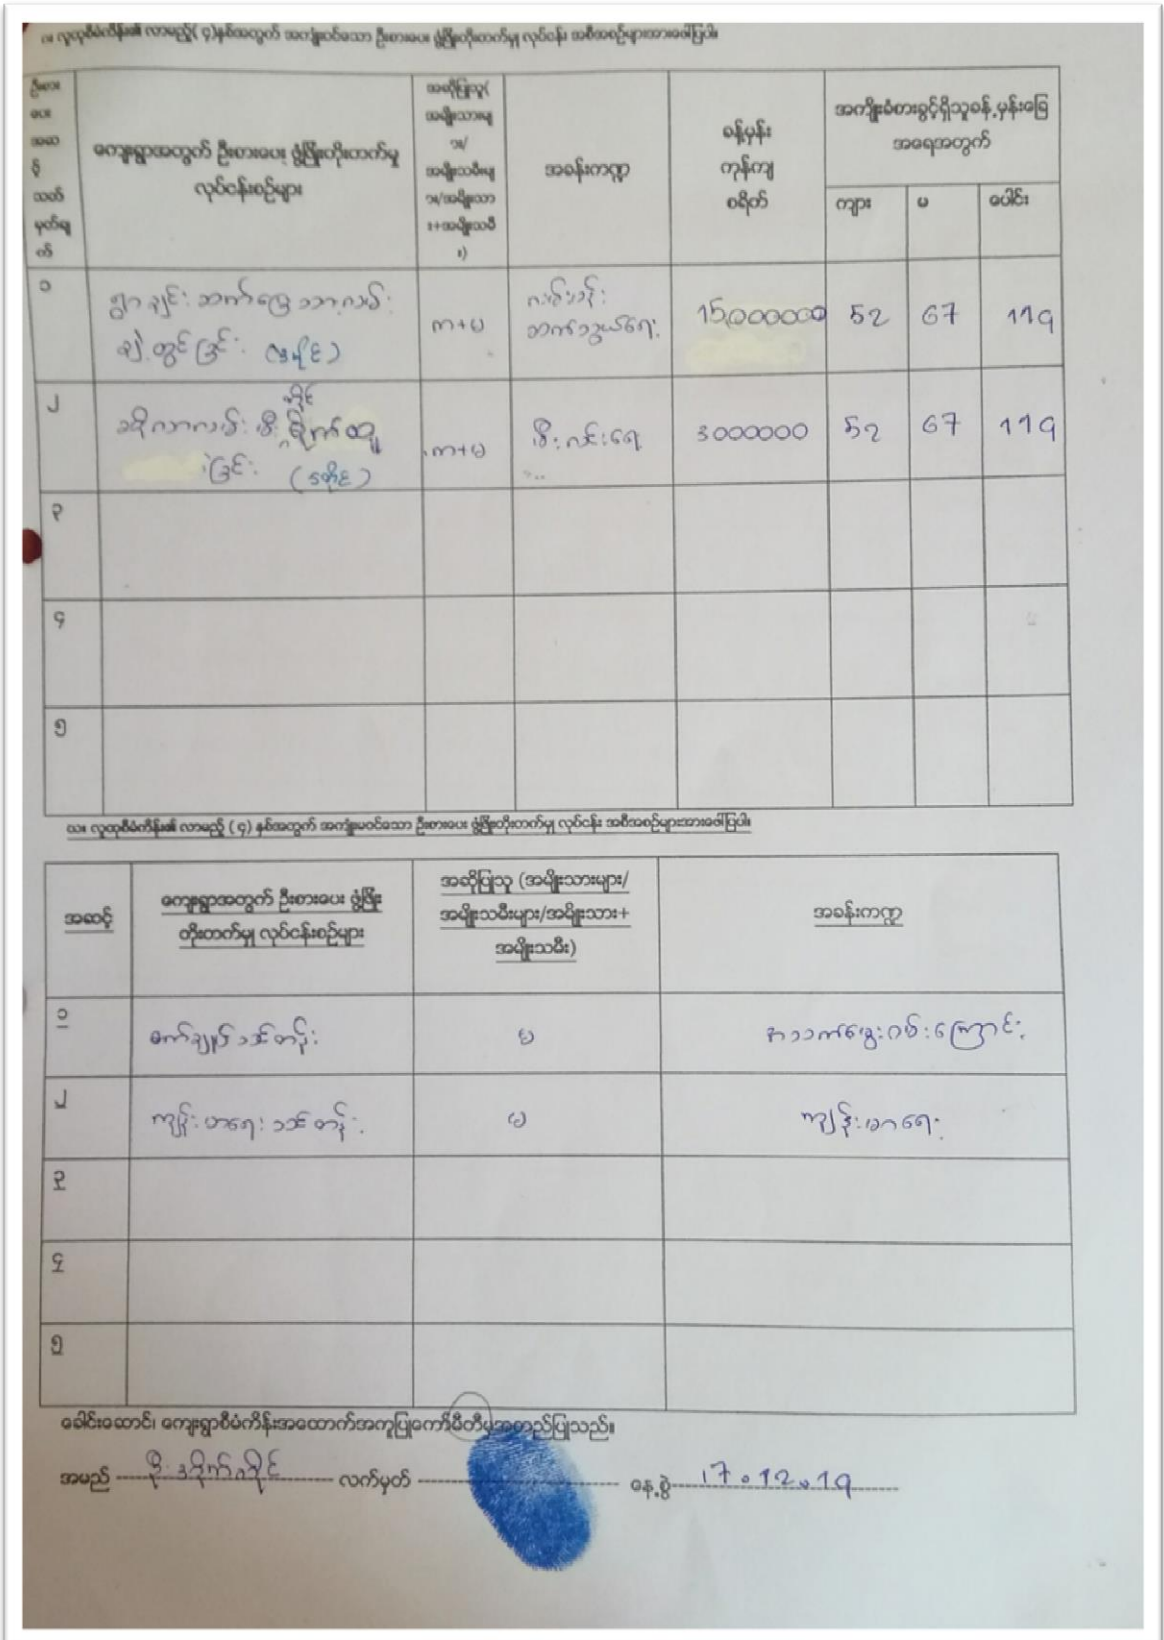 လ။ လူထုစီမံကိန်း၏ လာမည့်(၄)နှစ်အတွက် အကျုံးဝင်သော ဦးစားပေး ဖွံ့ဖြိုးတိုးတက်မှု လုပ်ငန်း အစီအစဉ်များအားဖေါ်ပြပါ။
ဦးစား
ပေး
အဆ
င့်
သတ်
မှတ်ချ
က်
ကျေးရွာအတွက် ဦးစားပေး ဖွံ့ဖြိုးတိုးတက်မှု
လုပ်ငန်းစဉ်များ
အဆိုပြုသူ(
အမျိုးသားမျ
ား/
အမျိုးသမီးမျ
ား/အမျိုးသာ
း+အမျိုးသမီ
း)
အခန်းကဏ္ဍ
ခန့်မှန်း
ကုန်ကျ
စရိတ်
အကျိုးခံစားခွင့်ရှိသူခန့်မှန်းခြေ
အရေအတွက်
ကျား
မ
ပေါင်း
၁
ရွာချင်းဆက်မြေသားလမ်း
ချဲ့ထွင်ခြင်း
က+မ
လမ်းပန်း
ဆက်သွယ်ရေး
15,000000
52
67
119
၂
ခြင်း
က+မ
မီးလင်းရေး
3000000
52
67
119
၃
၄
၅
ယ။ လူထုစီမံကိန်း၏ လာမည့် (၄) နှစ်အတွက် အကျုံးမဝင်သော ဦးစားပေး ဖွံ့ဖြိုးတိုးတက်မှု လုပ်ငန်း အစီအစဉ်များအားဖေါ်ပြပါ။
အဆင့်
ကျေးရွာအတွက် ဦးစားပေး ဖွံ့ဖြိုး
တိုးတက်မှု လုပ်ငန်းစဉ်များ
အဆိုပြုသူ (အမျိုးသားများ/
အမျိုးသမီးများ/အမျိုးသား+
အမျိုးသမီး)
အခန်းကဏ္ဍ
၁
စက်ချုပ်သင်တန်း
မ
အသက်မွေးဝမ်းကြောင်း
၂
ကျန်းမာရေးသင်တန်း
မ
ကျန်းမာရေး
၃
၄
၅
ခေါင်းဆောင်၊ ကျေးရွာစီမံကိန်းအထောက်အကူပြုကော်မီတီမှအတည်ပြုသည်။
အမည် လက်မှတ် နေ့စွဲ 17.12.19